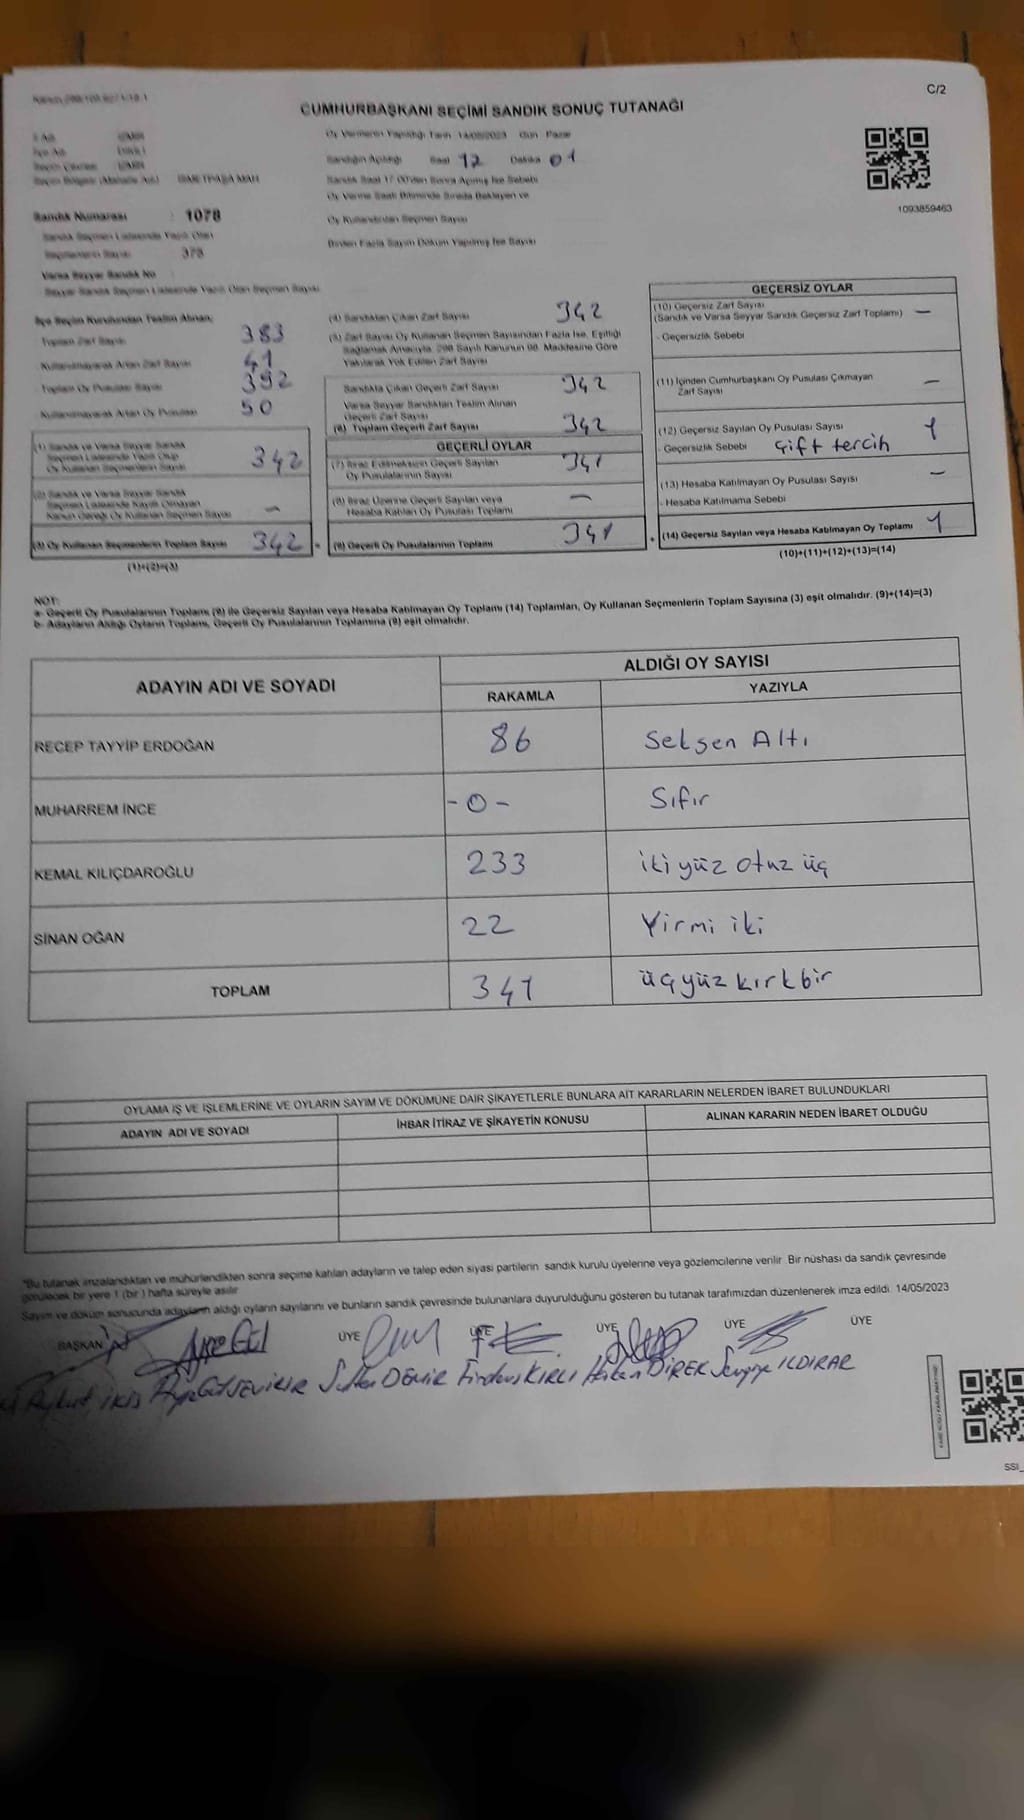 C/2
CUMHURBAŞKANI SEÇİMİ SANDIK SONUÇ TUTANAĞI
Oy Vermenin Yapıldığı Tarih 14/05/2023 Gün Pazar
Sandığın Açıldığı Saat 17 Dakika 01
Sandık Saat 17.00'den Sonra Açılmış İse Sebebi
Oy Verme Saati Bitiminde Sırada Bekleyen ve
Oy Kullandırılan Seçmen Sayısı
Birden Fazla Sayım Döküm Yapılmış İse Sayısı
1093859463
İSMETPAŞA MAH.
Sandık Numarası : 1078
Sandık Seçmen Listesinde Yazılı Olan
Seçmenlerin Sayısı : 378
Varsa Seyyar Sandık No
Seyyar Sandık Seçmen Listesinde Yazılı Olan Seçmen Sayısı
İlçe Seçim Kurulundan Teslim Alınan;
Toplam Zarf Sayısı 383
Kullanılmayarak Artan Zarf Sayısı 41
Toplam Oy Pusulası Sayısı 392
Kullanılmayarak Artan Oy Pusulası 50
(1) Sandık ve Varsa Seyyar Sandık
Seçmen Listesinde Yazılı Olup
Oy Kullanan Seçmenlerin Sayısı 342
(2) Sandık ve Varsa Seyyar Sandık
Seçmen Listesinde Kayıtlı Olmayan
Kanun Gereği Oy Kullanan Seçmen Sayısı —
(3) Oy Kullanan Seçmenlerin Toplam Sayısı 342 =
(1)+(2)=(3)
(4) Sandıktan Çıkan Zarf Sayısı 342
(5) Zarf Sayısı Oy Kullanan Seçmen Sayısından Fazla İse, Eşitliği
Sağlamak Amacıyla, 298 Sayılı Kanunun 98. Maddesine Göre
Yakılarak Yok Edilen Zarf Sayısı
Sandıkta Çıkan Geçerli Zarf Sayısı 342
Varsa Seyyar Sandıktan Teslim Alınan
Geçerli Zarf Sayısı
(6) Toplam Geçerli Zarf Sayısı 342
GEÇERLİ OYLAR
(7) İtiraz Edilmeksizin Geçerli Sayılan
Oy Pusulalarının Sayısı 341
(8) İtiraz Üzerine Geçerli Sayılan veya
Hesaba Katılan Oy Pusulası Toplamı —
(9) Geçerli Oy Pusulalarının Toplamı 341 +
GEÇERSİZ OYLAR
(10) Geçersiz Zarf Sayısı
(Sandık ve Varsa Seyyar Sandık Geçersiz Zarf Toplamı) —
- Geçersizlik Sebebi
(11) İçinden Cumhurbaşkanı Oy Pusulası Çıkmayan
Zarf Sayısı —
(12) Geçersiz Sayılan Oy Pusulası Sayısı 1
- Geçersizlik Sebebi çift tercih
(13) Hesaba Katılmayan Oy Pusulası Sayısı —
- Hesaba Katılmama Sebebi
(14) Geçersiz Sayılan veya Hesaba Katılmayan Oy Toplamı 1
(10)+(11)+(12)+(13)=(14)
NOT:
a- Geçerli Oy Pusulalarının Toplamı (9) ile Geçersiz Sayılan veya Hesaba Katılmayan Oy Toplamı (14) Toplamları, Oy Kullanan Seçmenlerin Toplam Sayısına (3) eşit olmalıdır. (9)+(14)=(3)
b- Adayların Aldığı Oyların Toplamı, Geçerli Oy Pusulalarının Toplamına (9) eşit olmalıdır.
ADAYIN ADI VE SOYADI
ALDIĞI OY SAYISI
RAKAMLA YAZIYLA
RECEP TAYYİP ERDOĞAN 86 Seksen Altı
MUHARREM İNCE -0- Sıfır
KEMAL KILIÇDAROĞLU 233 iki yüz otuz üç
SİNAN OĞAN 22 Yirmi iki
TOPLAM 341 üçyüz kırkbir
OYLAMA İŞ VE İŞLEMLERİNE VE OYLARIN SAYIM VE DÖKÜMÜNE DAİR ŞİKAYETLERLE BUNLARA AİT KARARLARIN NELERDEN İBARET BULUNDUKLARI
ADAYIN ADI VE SOYADI İHBAR İTİRAZ VE ŞİKAYETİN KONUSU ALINAN KARARIN NEDEN İBARET OLDUĞU
"Bu tutanak imzalandıktan ve mühürlendikten sonra seçime katılan adayların ve talep eden siyasi partilerin sandık kurulu üyelerine veya gözlemcilerine verilir. Bir nüshası da sandık çevresinde
görülecek bir yere 1 (bir) hafta süreyle asılır
Sayım ve döküm sonucunda adayların aldığı oyların sayılarını ve bunların sandık çevresinde bulunanlara duyurulduğunu gösteren bu tutanak tarafımızdan düzenlenerek imza edildi. 14/05/2023
BAŞKAN ÜYE ÜYE ÜYE ÜYE ÜYE
DEMİR Firdevs KIRLI Hakan DİREK ILDIRAR
SSI_